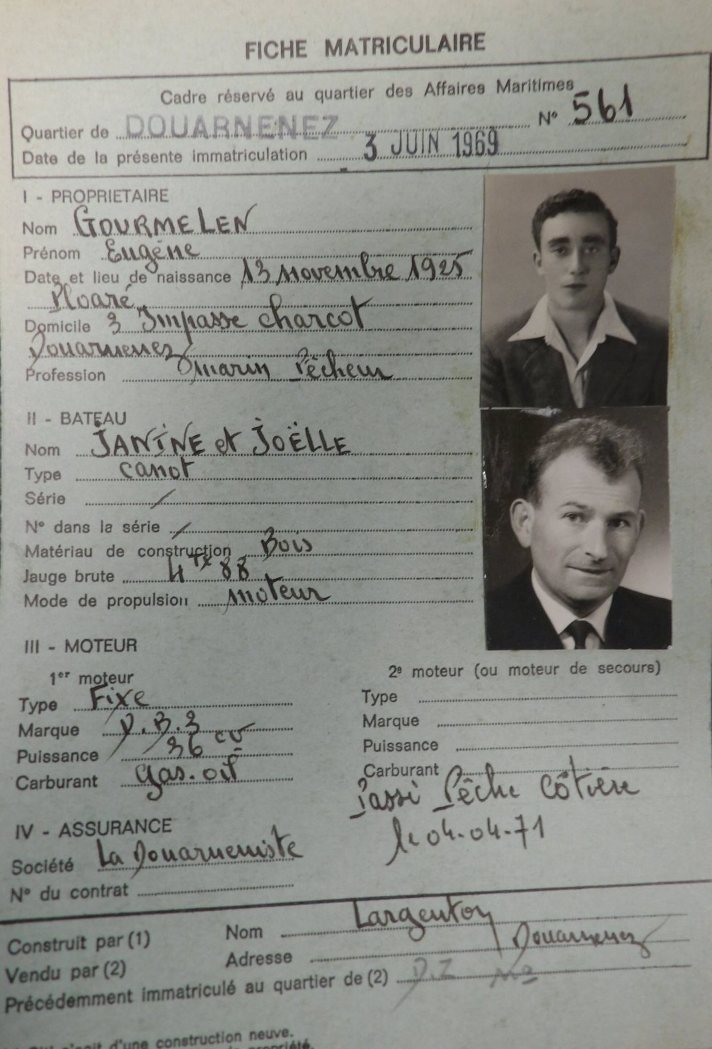 FICHE MATRICULAIRE
Cadre réservé au quartier des Affaires Maritimes
Quartier de DOUARNENEZ N° 561
Date de la présente immatriculation 3 JUIN 1969
I - PROPRIETAIRE
Nom GOURMELEN
Prénom Eugène
Date et lieu de naissance 13 novembre 1925
Ploaré
Domicile 3 Impasse charcot
Douarnenez
Profession marin Pêcheur
II - BATEAU
Nom JANINE et JOËLLE
Type canot
Série /
N° dans la série /
Matériau de construction Bois
Jauge brute 4 Tx 88
Mode de propulsion moteur
III - MOTEUR
1er moteur
Type Fixe
Marque D.B.3
Puissance 36 cv
Carburant Gas.oil
2e moteur (ou moteur de secours)
Type
Marque
Puissance
Carburant
Passé Pêche Côtière
le 04-04-71
IV - ASSURANCE
Société La Douarneniste
N° du contrat
Construit par (1) Nom Largenton
Vendu par (2) Adresse Douarnenez
Précédemment immatriculé au quartier de (2) D.Z N°
d'une construction neuve.
propriété.